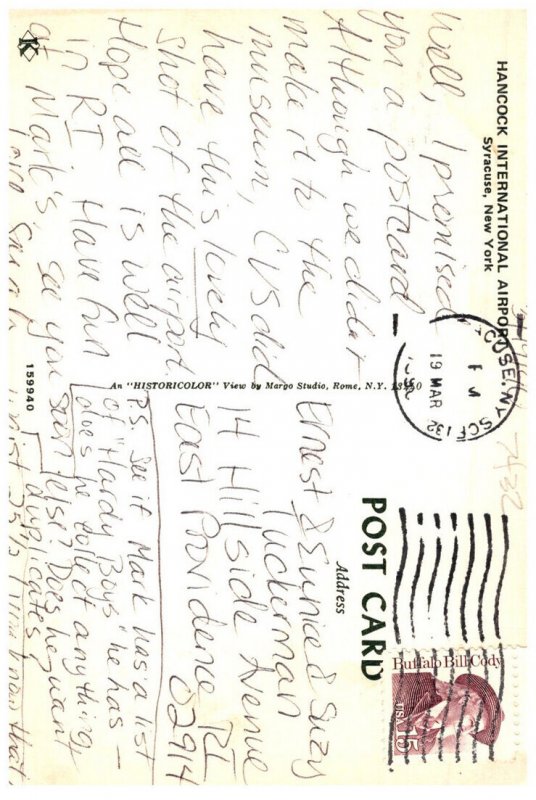 HANCOCK INTERNATIONAL AIRPORT
Syracuse, New York
Well, I promised
you a postcard —
Although we didn't
make it to the
museum, CVS did
have this lovely
shot of the airport.
Hope all is well
in RI Have fun
at Mark's see you soon
Love
K
159940
An "HISTORICOLOR" View by Margo Studio, Rome, N.Y.
CUSE, NY
SCF 132
PM
19 MAR
POST CARD
Address
Buffalo Bill Cody
USA 15
Ernest & Eunice & Suzy
Tuckerman
14 Hillside Avenue
East Providence RI
02914
P.S. See if Mark has a list
of "Hardy Boys" he has —
does he collect anything
else? Does he want
duplicates?
that